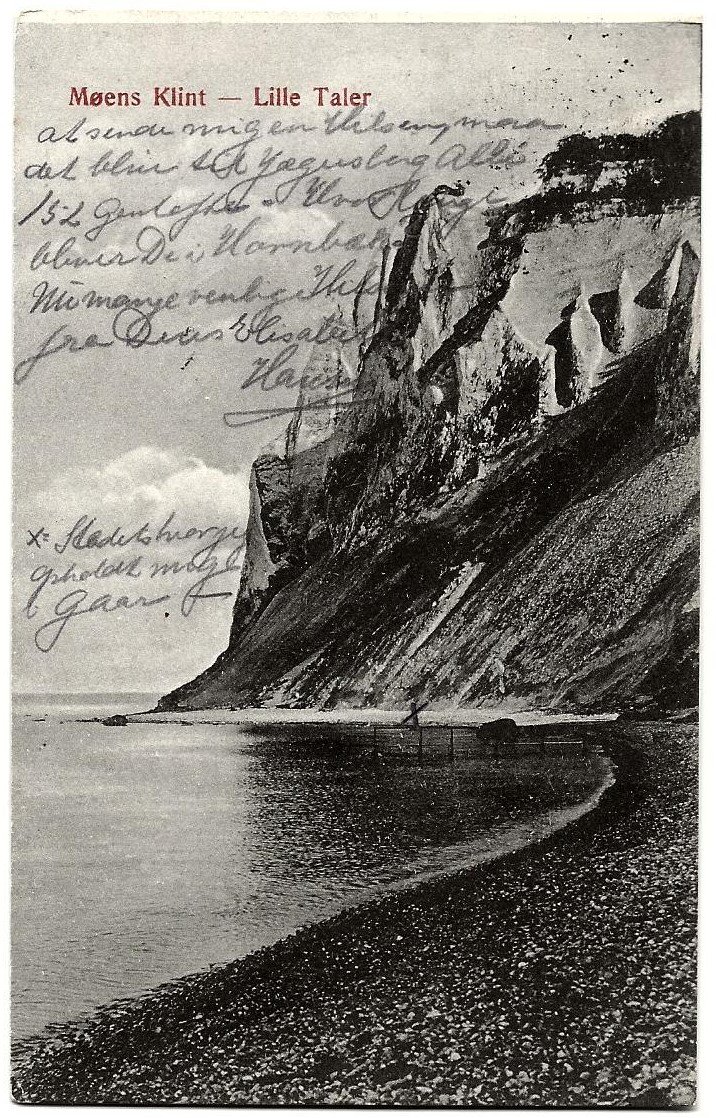 Møens Klint — Lille Taler
at sende mig en Hilsen, maa
det bliv til Jægersborg Allé
152 Gentofte. Hvor længe
bliver De i Hornbæk
Nu mange venlige
fra Deres Elisabeth
Hansen
x= Stadet hvor jeg
opholdt mig
i Gaar